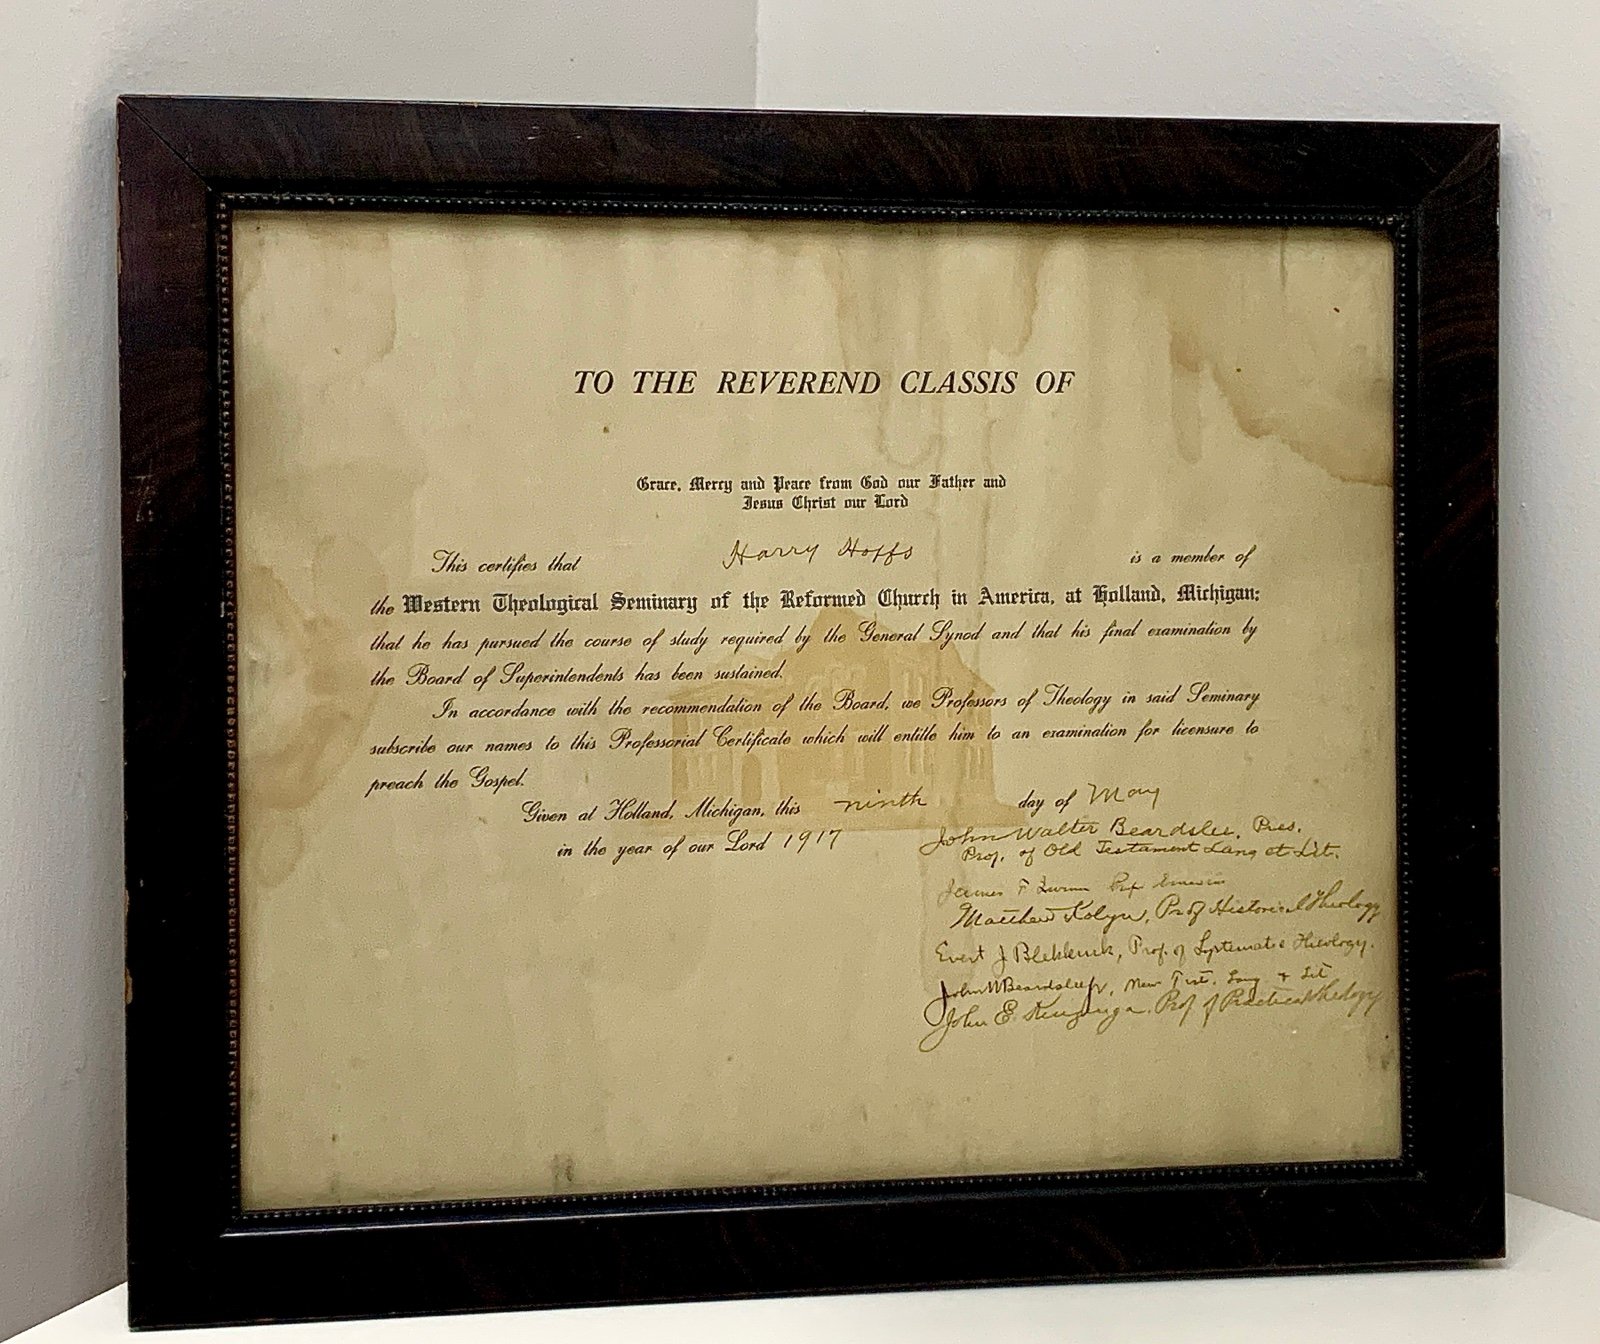 TO THE REVEREND CLASSIS OF
Grace, Mercy and Peace from God our Father and
Jesus Christ our Lord
This certifies that Harry Hoffs is a member of
the Western Theological Seminary of the Reformed Church in America, at Holland, Michigan;
that he has pursued the course of study required by the General Synod and that his final examination by
the Board of Superintendents has been sustained.
In accordance with the recommendation of the Board, we Professors of Theology in said Seminary
subscribe our names to this Professorial Certificate which will entitle him to an examination for licensure to
preach the Gospel.
Given at Holland, Michigan, this ninth day of May
in the year of our Lord 1917
John Walter Beardslee, Pres.
Prof. of Old Testament Lang et Lit.
James F
Matthew Kolyn, Prof Historical Theology
Evert J Blekkink, Prof. of Systematic Theology.
John W Beardslee Jr, New Test. Lang & Lit
John E. Kuizenga. Prof of Practical Theology